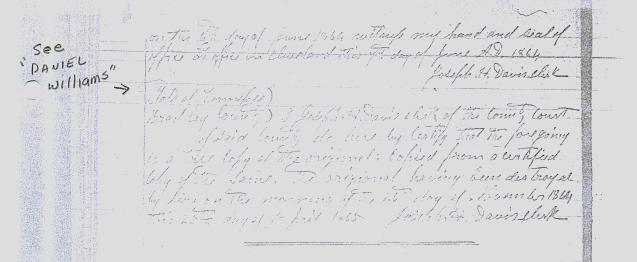 "See
DANIEL
Williams"
on the day of June 1864 witness my hand and seal of
office at office in Cleveland this day of June A.D. 1864
Joseph H. Davis Clk
State of Tennessee)
Bradley County) I Joseph H. Davis Clk of the County Court
of said County do here by certify that the foregoing
is a true copy of the original: Copied from a certified
Copy of the same. The original having been destroyed
by fire on the morning of the day of November 1864
This 25th day of April 1865 Joseph H. Davis Clk